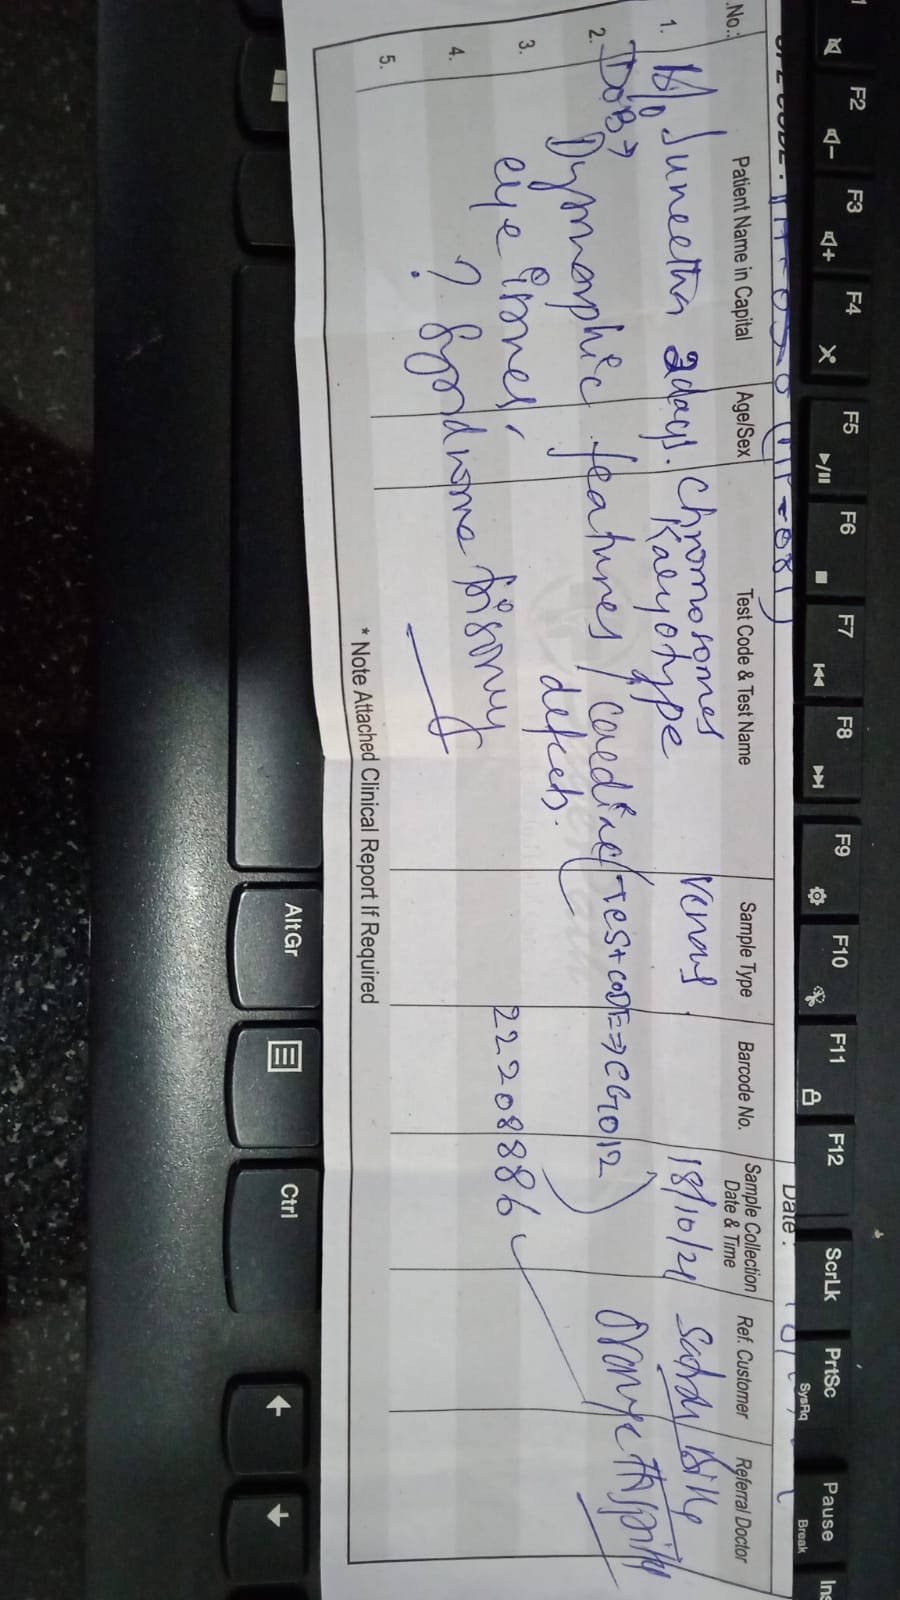 .No.:
Patient Name in Capital
Age/Sex
Test Code & Test Name
Sample Type
Barcode No.
Sample Collection
Date & Time
Ref. Customer
Referral Doctor
Date :
1.
B/o Suneetha 2days. Chromosomes
Karyotype
venous.
18/10/21
2.
DOB →
Dysmorphic features / cardiac
defects.
(Test CODE ⇒ CG012)
3.
22208886
4.
? Syndrome trisomy
5.
* Note Attached Clinical Report If Required
F2
F3
F4
F5
F6
F7
F8
F9
F10
F11
F12
ScrLk
PrtSc
SysRq
Pause
Break
Ins
AltGr
Ctrl